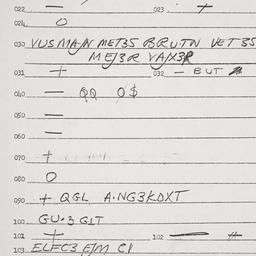 022 —
023 +
024 O
030 VUSMAIN MET35 OBRUTN VET 35
ME/3R VA/X3R
031 +
032 — BUT
040 — QQ O$
050 —
060 —
070 +
080 O
090 + QGL A·NG3KDXT
100 GU·3 GIT
101 +
102 — #
103 ELEC3 E/M CI